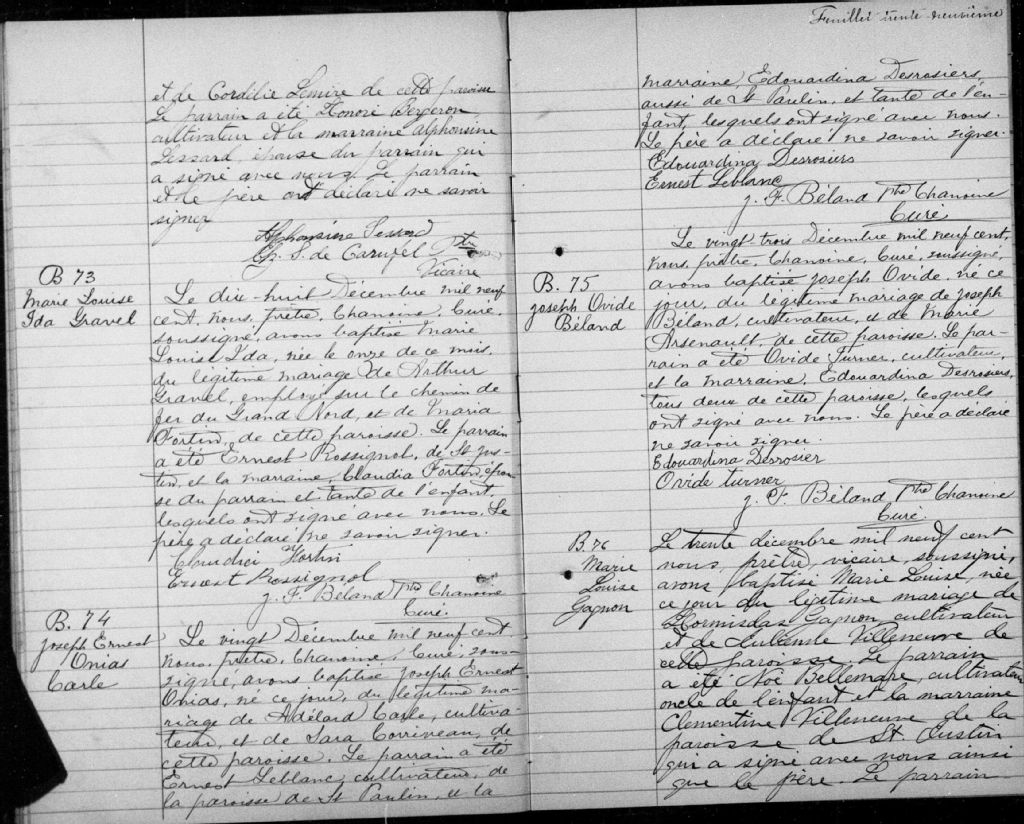 et de Cordélie Lemire de cette paroisse
Le parrain a été Honoré Bergeron
cultivateur et la marraine Alphonsine
Lessard, épouse du parrain qui
a signé avec nous. Le parrain
et le père ont déclaré ne savoir
signer
Alphonsine Lessard
S. de Carufel Ptre
Vicaire
B 73
Marie Louise
Ida Gravel
Le dix-huit Décembre mil neuf
cent, nous, prêtre, Chanoine, Curé,
soussigné, avons baptisé Marie
Louise Ida, née le onze de ce mois,
du légitime mariage de Arthur
Gravel, employé sur le chemin de
fer du Grand Nord, et de Maria
Fortin, de cette paroisse. Le parrain
a été Ernest Rossignol, de St Jus-
tin, et la marraine, Claudia Fortin, épou-
se du parrain et tante de l'enfant,
lesquels ont signé avec nous. Le
père a déclaré ne savoir signer.
Claudia Fortin
Ernest Rossignol
J. F. Béland Ptre Chanoine
Curé.
B. 74
Joseph Ernest
Onias
Carle
Le vingt Décembre mil neuf cent
nous, prêtre, Chanoine, Curé, sous-
signé, avons baptisé Joseph Ernest
Onias, né ce jour, du légitime ma-
riage de Adélard Carle, cultiva-
teur, et de Sara Corriveau, de
cette paroisse. Le parrain a été
Ernest Leblanc, cultivateur, de
la paroisse de St Paulin, et la
Feuillet trente-neuvième
marraine, Edouardina Desrosiers,
aussi de St Paulin, et tante de l'en-
fant, lesquels ont signé avec nous.
Le père a déclaré ne savoir signer.
Edouardina Desrosiers
Ernest Leblanc
J. F. Béland Ptre Chanoine
Curé
B. 75
Joseph Ovide
Béland
Le vingt-trois Décembre mil neuf cent,
nous, prêtre, Chanoine, Curé, soussigné,
avons baptisé Joseph Ovide, né ce
jour, du légitime mariage de Joseph
Béland, cultivateur, et de Marie
Arsenault, de cette paroisse. Le par-
rain a été Ovide Turner, cultivateur,
et la marraine, Edouardina Desrosiers,
tous deux de cette paroisse, lesquels
ont signé avec nous. Le père a déclaré
ne savoir signer.
Edouardina Desrosier
Ovide turner
J. F. Béland Ptre Chanoine
Curé.
B. 76
Marie
Louise
Gagnon
Le trente décembre mil neuf cent
nous, prêtre, vicaire, soussigné,
avons baptisé Marie Louise, née
ce jour du légitime mariage de
Hormisdas Gagnon, cultivateur
et de Villeneuve de
cette paroisse. Le parrain
a été Noé Bellemare, cultivateur
oncle de l'enfant et la marraine
Clementine Villeneuve de la
paroisse de St Justin
qui a signé avec nous ainsi
que le père. Le parrain